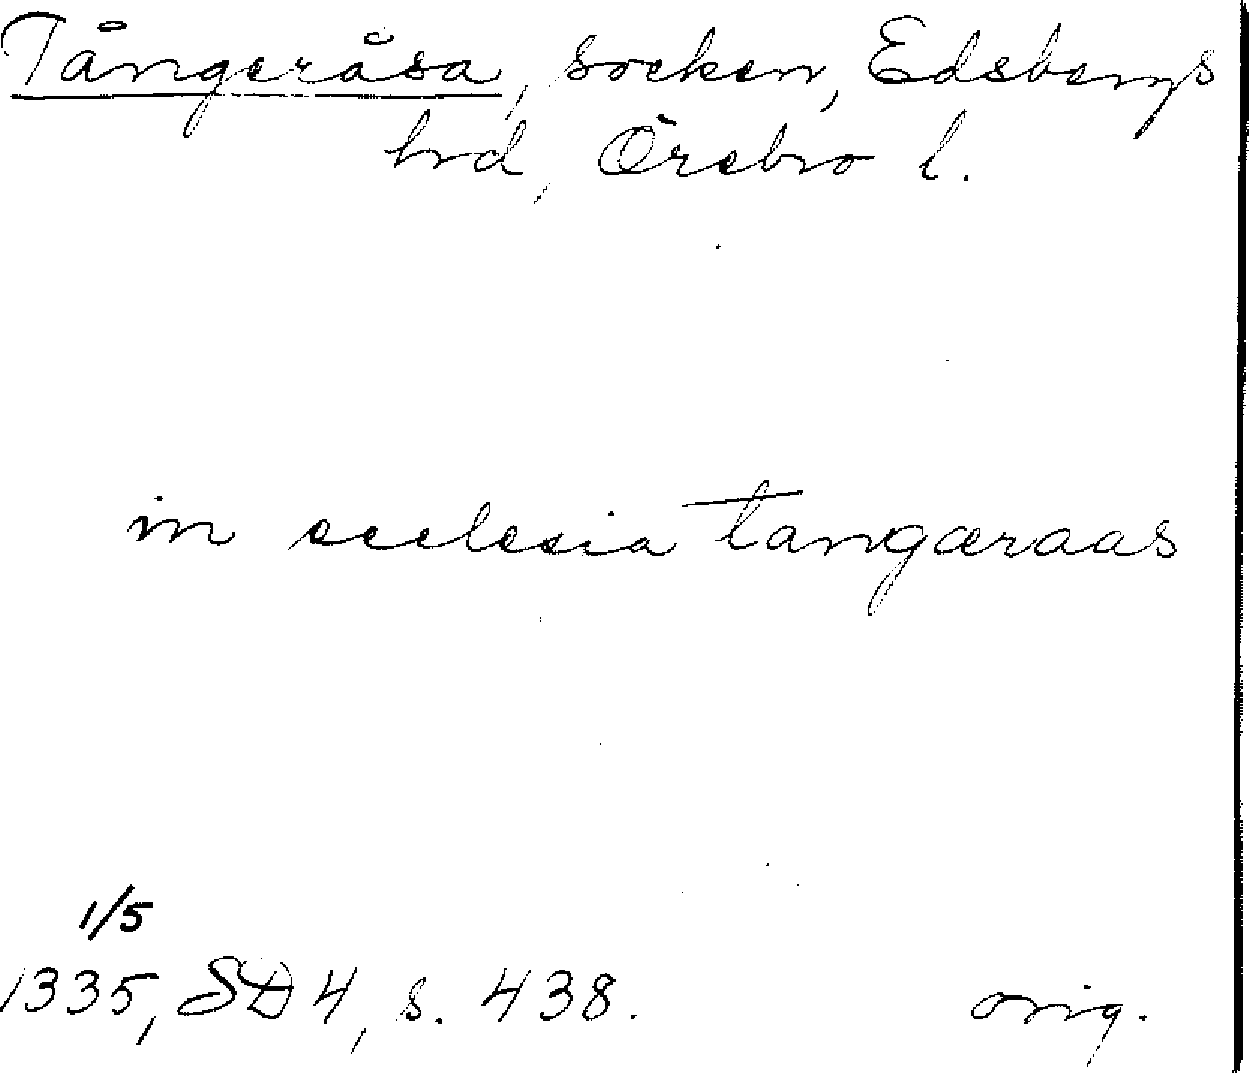 Tångeråsa, socken, Edsbergs
hd, Örebro l.
in ecclesia tangæraas
1/5
1335, SD 4, s. 438. orig.